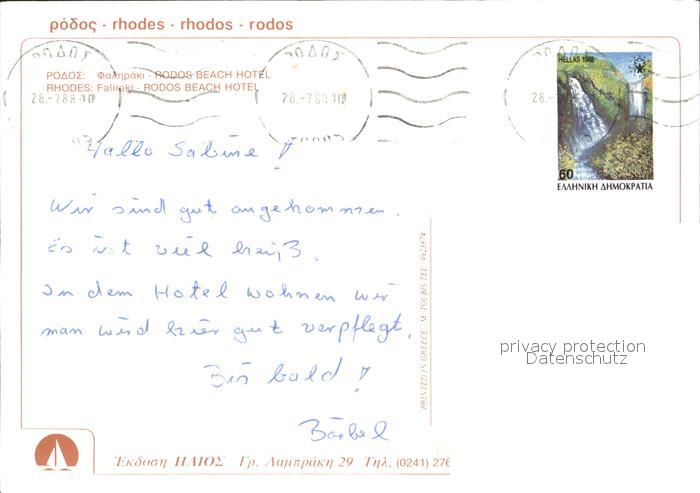 ρόδος - rhodes - rhodos - rodos
ΡΟΔΟΣ
ΡΟΔΟΣ: Φαληράκι - RODOS BEACH HOTEL
RHODES: Faliraki - RODOS BEACH HOTEL
28.-7.88.-10
28.-7.88.10
28.-
HELLAS 1988
60
ΕΛΛΗΝΙΚΗ ΔΗΜΟΚΡΑΤΙΑ
Hallo Sabine!
Wir sind gut angekommen.
Es ist viel heiß.
In dem Hotel wohnen wir
man wird hier gut verpflegt.
Bis bald!
Bärbel
PRINTED IN GREECE M. TOUBIS TEL. 9923874
privacy protection
Datenschutz
Έκδοση ΗΛΙΟΣ Γρ. Λαμπράκη 29 Τηλ. (0241) 276